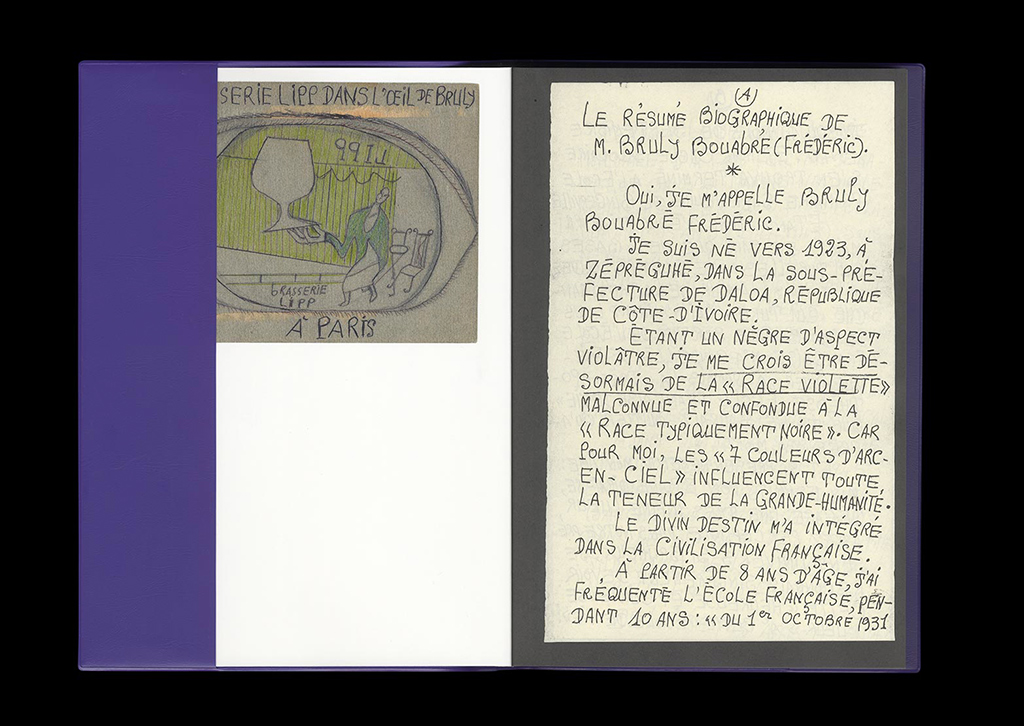 SERIE LIPP DANS L'ŒIL DE BRULY
LIPP
BRASSERIE
LIPP
À PARIS
A
LE RÉSUMÉ BIOGRAPHIQUE DE
M. BRULY BOUABRÉ (FRÉDÉRIC).
*
OUI, JE M'APPELLE BRULY
BOUABRÉ FRÉDÉRIC.
JE SUIS NÉ VERS 1923, À
ZÉPRÉGUHÉ, DANS LA SOUS-PRÉ-
FECTURE DE DALOA, RÉPUBLIQUE
DE CÔTE-D'IVOIRE.
ÉTANT UN NÈGRE D'ASPECT
VIOLÂTRE, JE ME CROIS ÊTRE DÉ-
SORMAIS DE LA « RACE VIOLETTE »
MALCONNUE ET CONFONDUE À LA
« RACE TYPIQUEMENT NOIRE ». CAR
POUR MOI, LES « 7 COULEURS D'ARC-
EN-CIEL » INFLUENCENT TOUTE
LA TENEUR DE LA GRANDE-HUMANITÉ.
LE DIVIN DESTIN M'A INTÉGRÉ
DANS LA CIVILISATION FRANÇAISE.
À PARTIR DE 8 ANS D'ÂGE, J'AI
FRÉQUENTÉ L'ÉCOLE FRANÇAISE, PEN-
DANT 10 ANS : « DU 1er OCTOBRE 1931